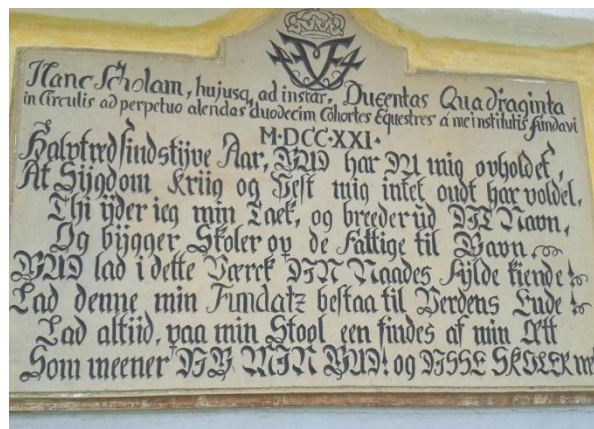 Hanc Scholam, hujusq, ad instar, Ducentas Quadraginta
in Circulis ad perpetuo alendas duodecim Cohortes Equestres a me institutis fundavi
M·DCC·XXI·
Halvtredsindstijve Aar, GUD har DU mig opholdet,
At Sijgdom Kriig og Pest mig intet ondt har voldet,
Thi ijder ieg min Tack, og breeder ud DIT Navn,
Og bijgger Skoler op de Fattige til Gavn,
GUD lad i dette Værck DIN Naades Fylde kiende
Lad denne min Fundatz bestaa til Verdens Ende
Lad altiid, paa min Stool een findes af min Ætt
Som meener DIG MIN GUD! og DISSE SKOLER